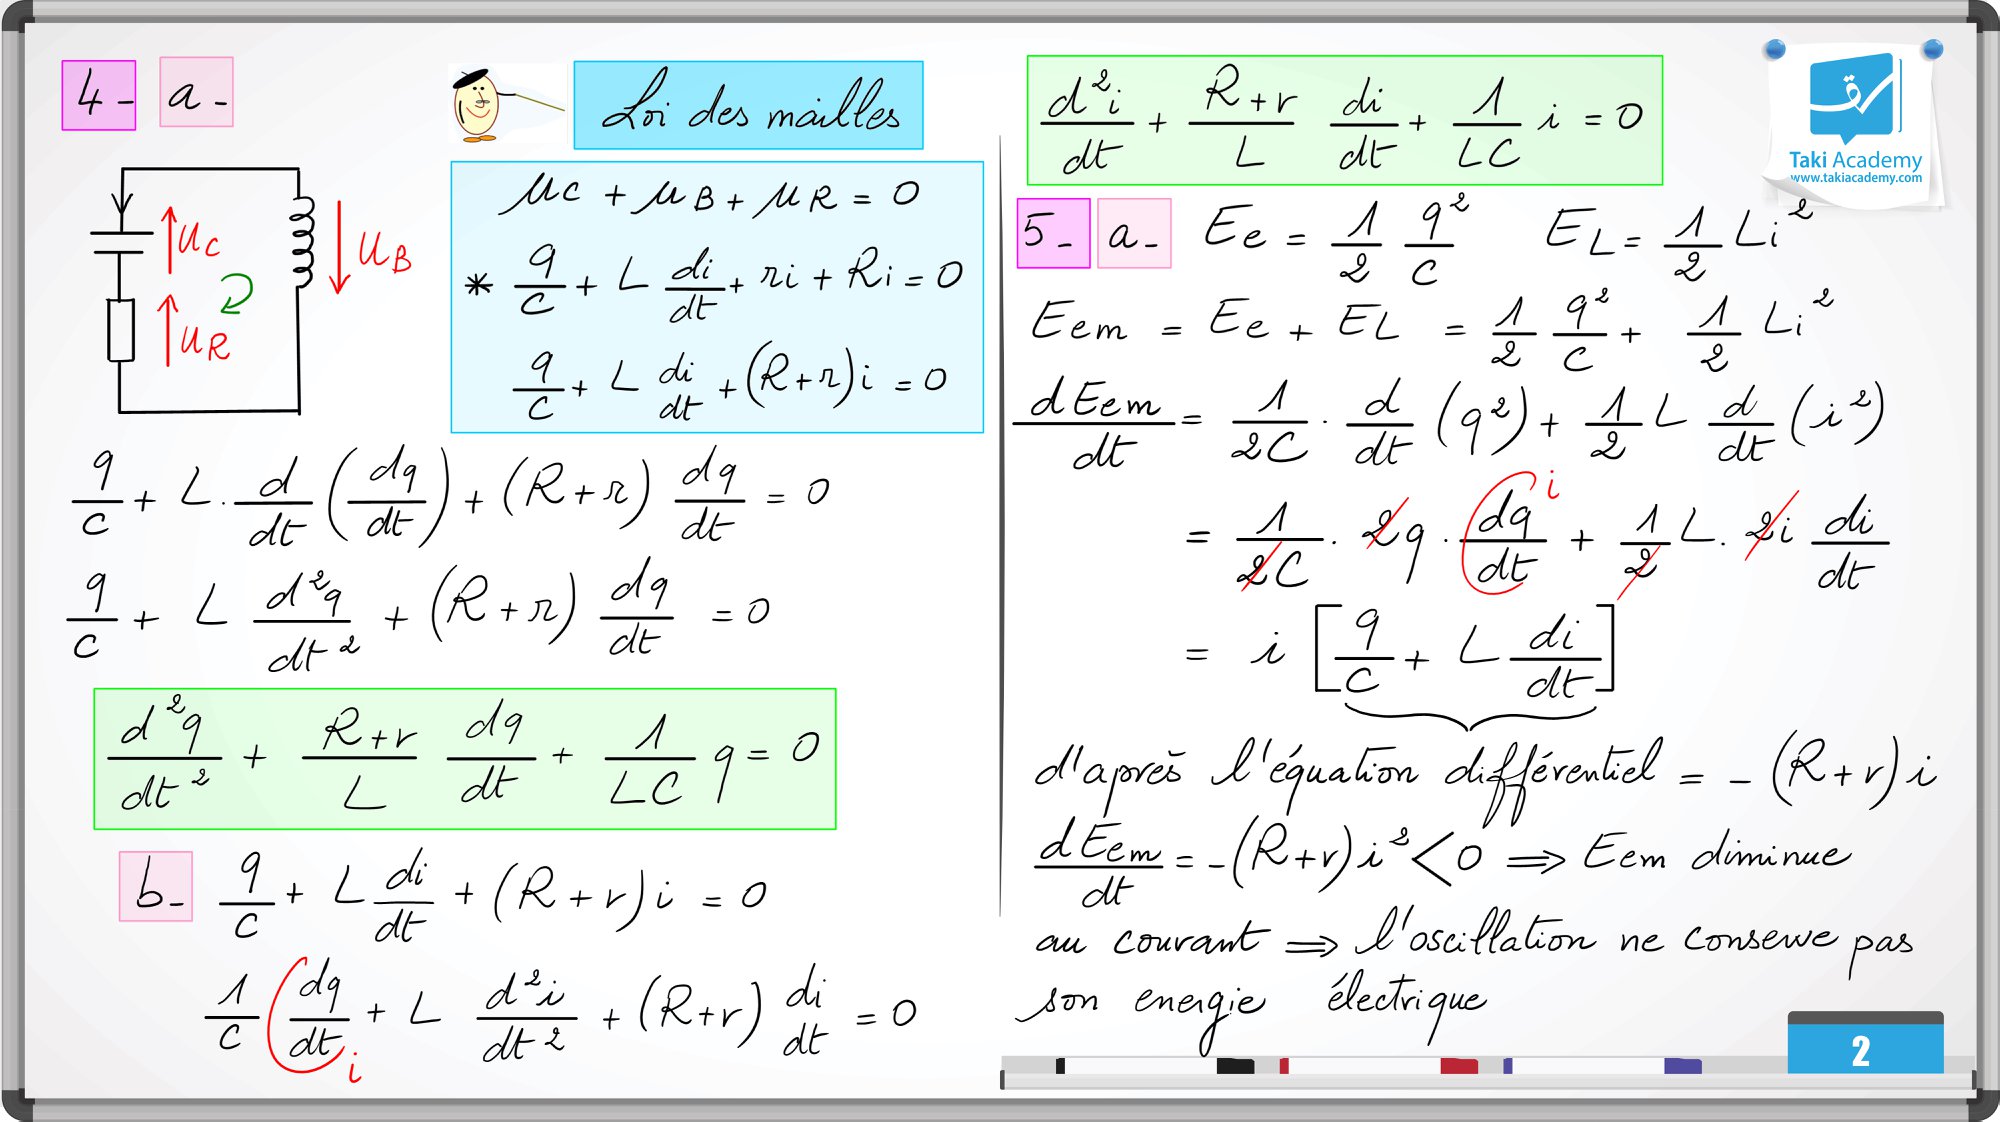 4- a-
Loi des mailles
uC
uB
uR
uC + uB + uR = 0
* q/C + L di/dt + ri + Ri = 0
q/C + L di/dt + (R+r)i = 0
q/C + L . d/dt (dq/dt) + (R+r) dq/dt = 0
q/C + L d²q/dt² + (R+r) dq/dt = 0
d²q/dt² + R+r/L dq/dt + 1/LC q = 0
b- q/C + L di/dt + (R+r)i = 0
1/C dq/dt + L d²i/dt² + (R+r) di/dt = 0
i
d²i/dt + R+r/L di/dt + 1/LC i = 0
Taki Academy
www.takiacademy.com
5- a- Ee = 1/2 q²/C EL = 1/2 Li²
Eem = Ee + EL = 1/2 q²/C + 1/2 Li²
dEem/dt = 1/2C . d/dt (q²) + 1/2 L d/dt (i²)
i
= 1/2C . 2q . dq/dt + 1/2 L . 2i di/dt
= i [q/C + L di/dt]
d'après l'équation différentiel = -(R+r)i
dEem/dt = -(R+r)i² < 0 => Eem diminue
au courant => l'oscillation ne conserve pas
son energie électrique
2